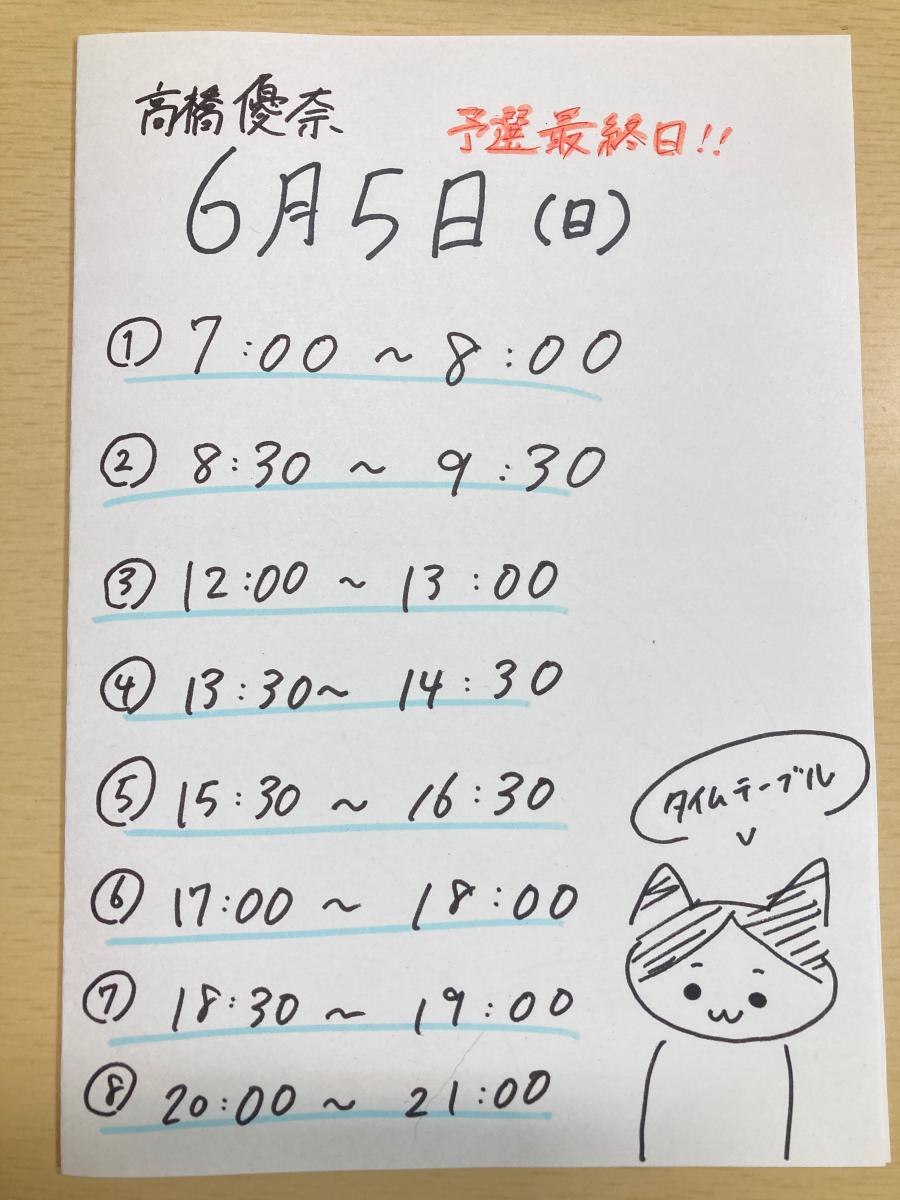 高橋優奈
予選最終日!!
6月5日(日)
① 7:00 ~ 8:00
② 8:30 ~ 9:30
③ 12:00 ~ 13:00
④ 13:30~ 14:30
⑤ 15:30 ~ 16:30
⑥ 17:00 ~ 18:00
⑦ 18:30 ~ 19:00
⑧ 20:00 ~ 21:00
タイムテーブル